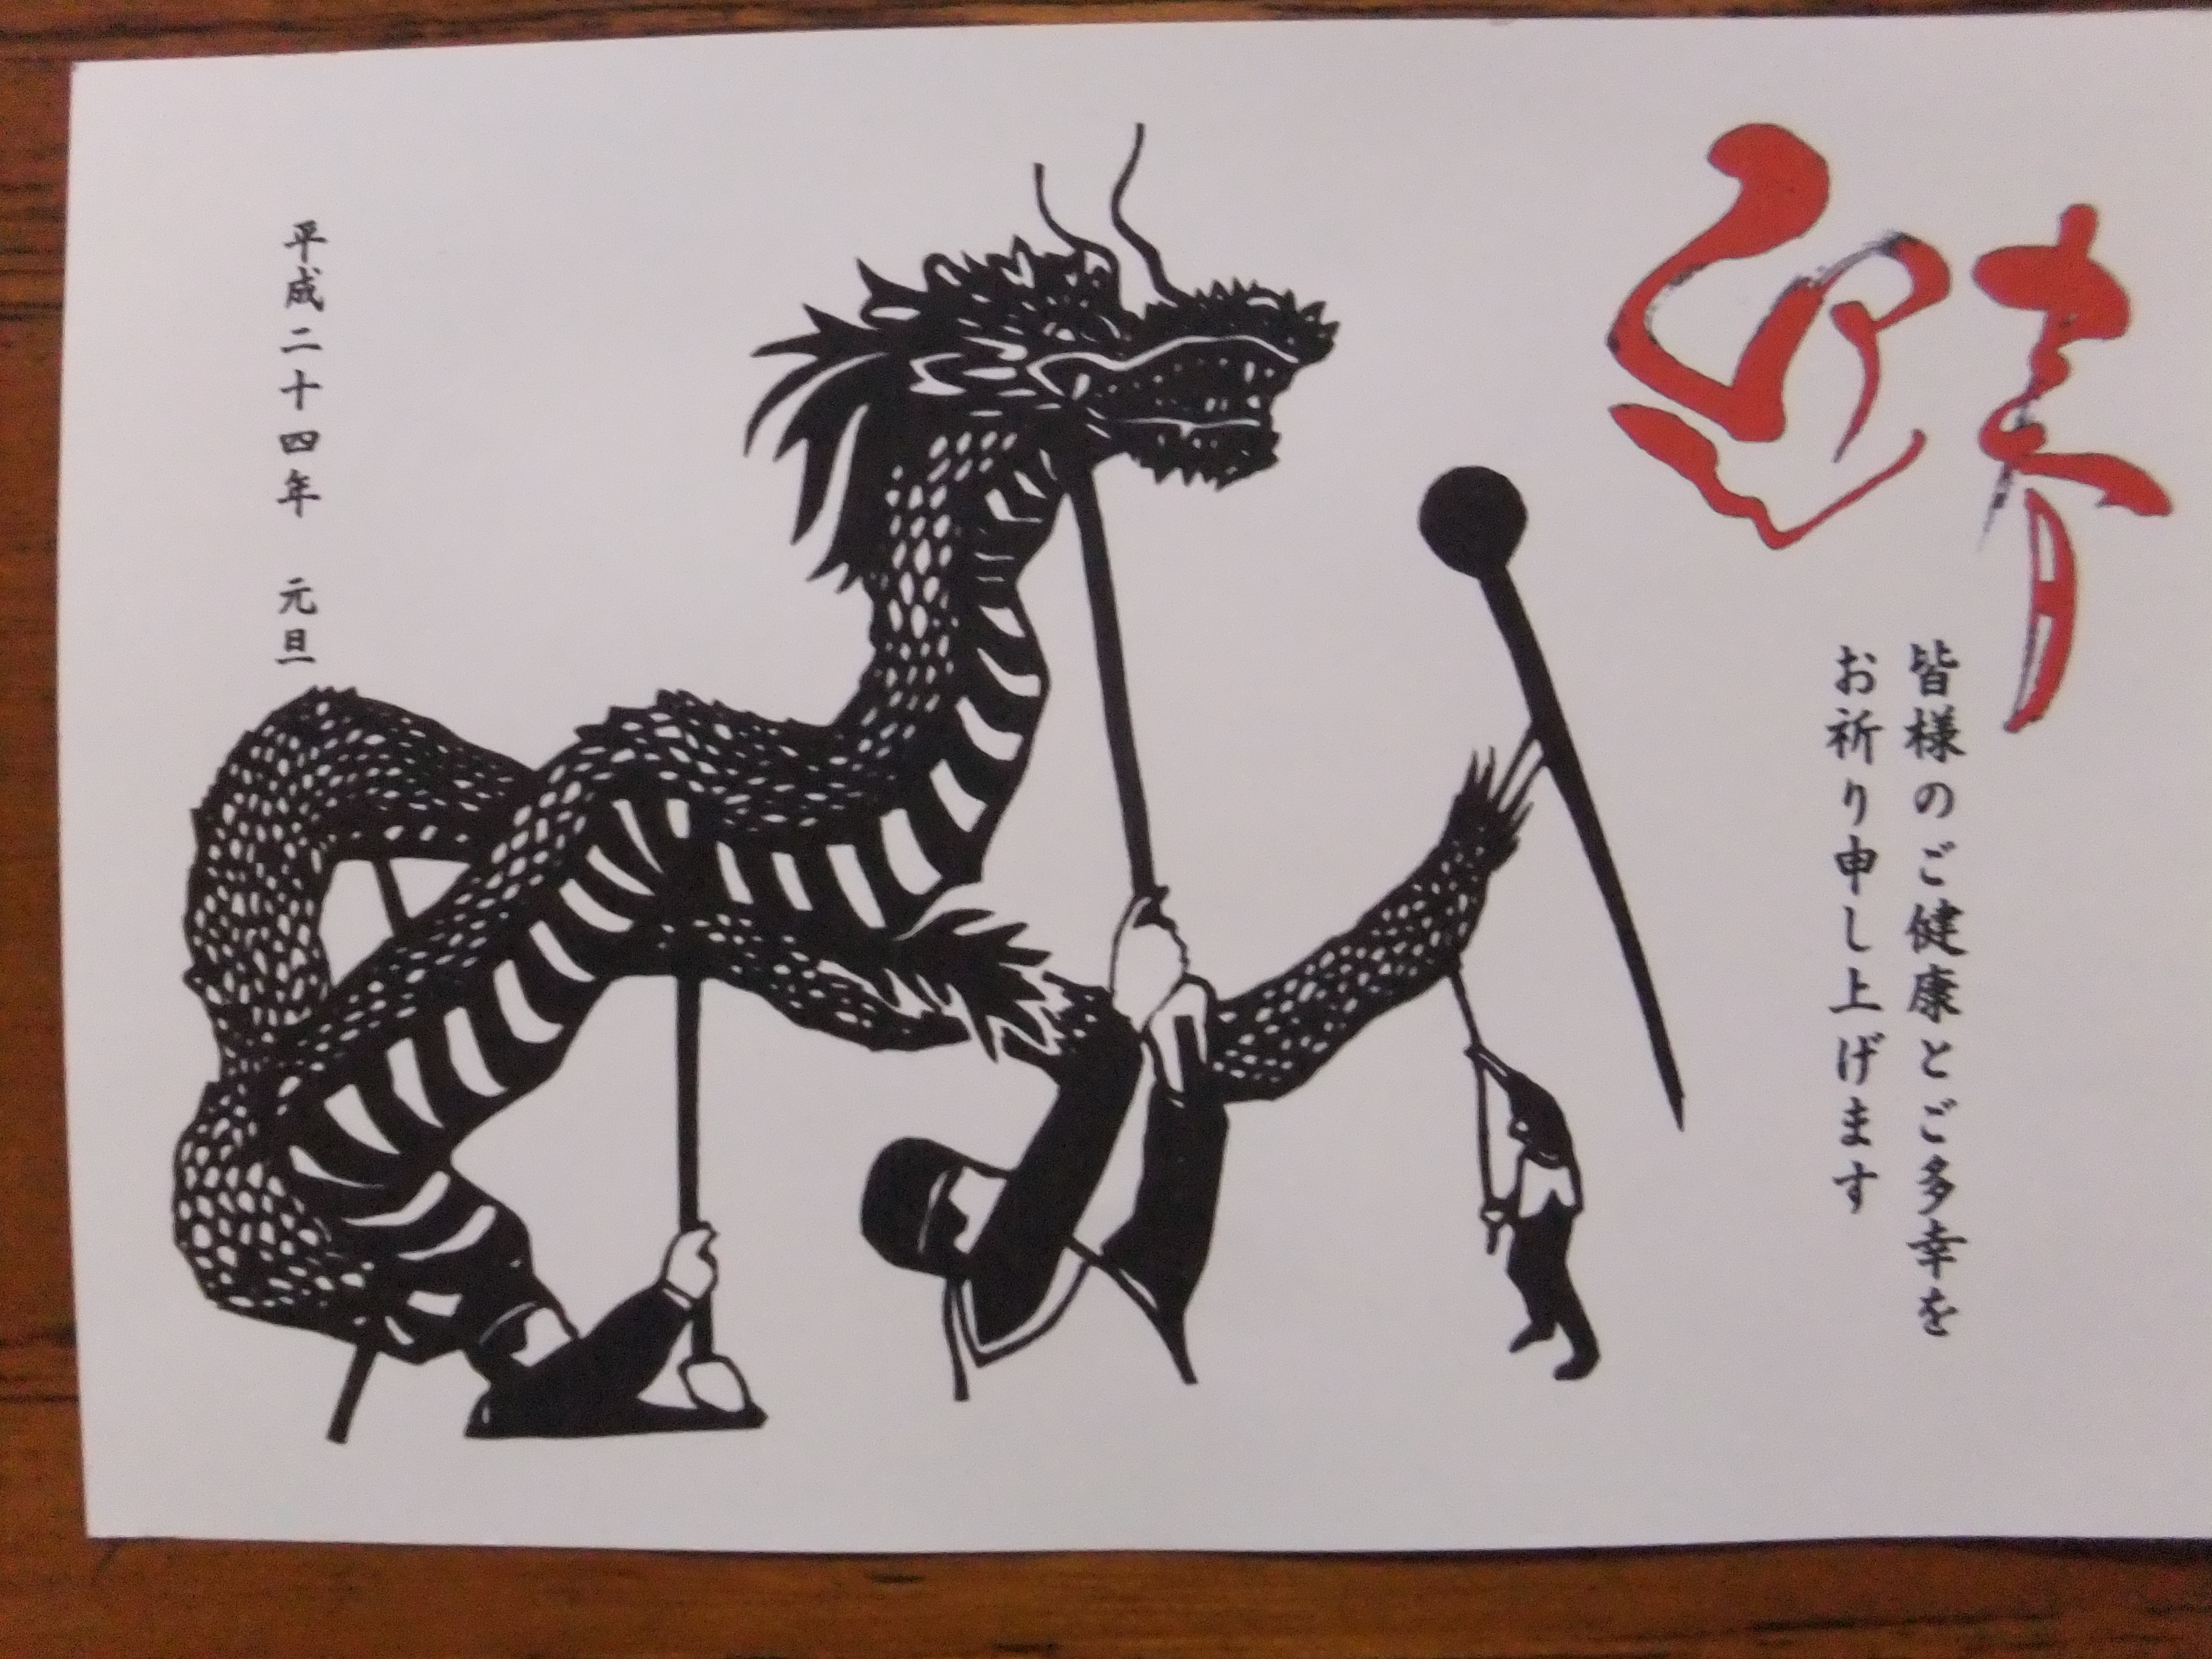 迎春
皆様のご健康とご多幸を
お祈り申し上げます
平成二十四年 元旦